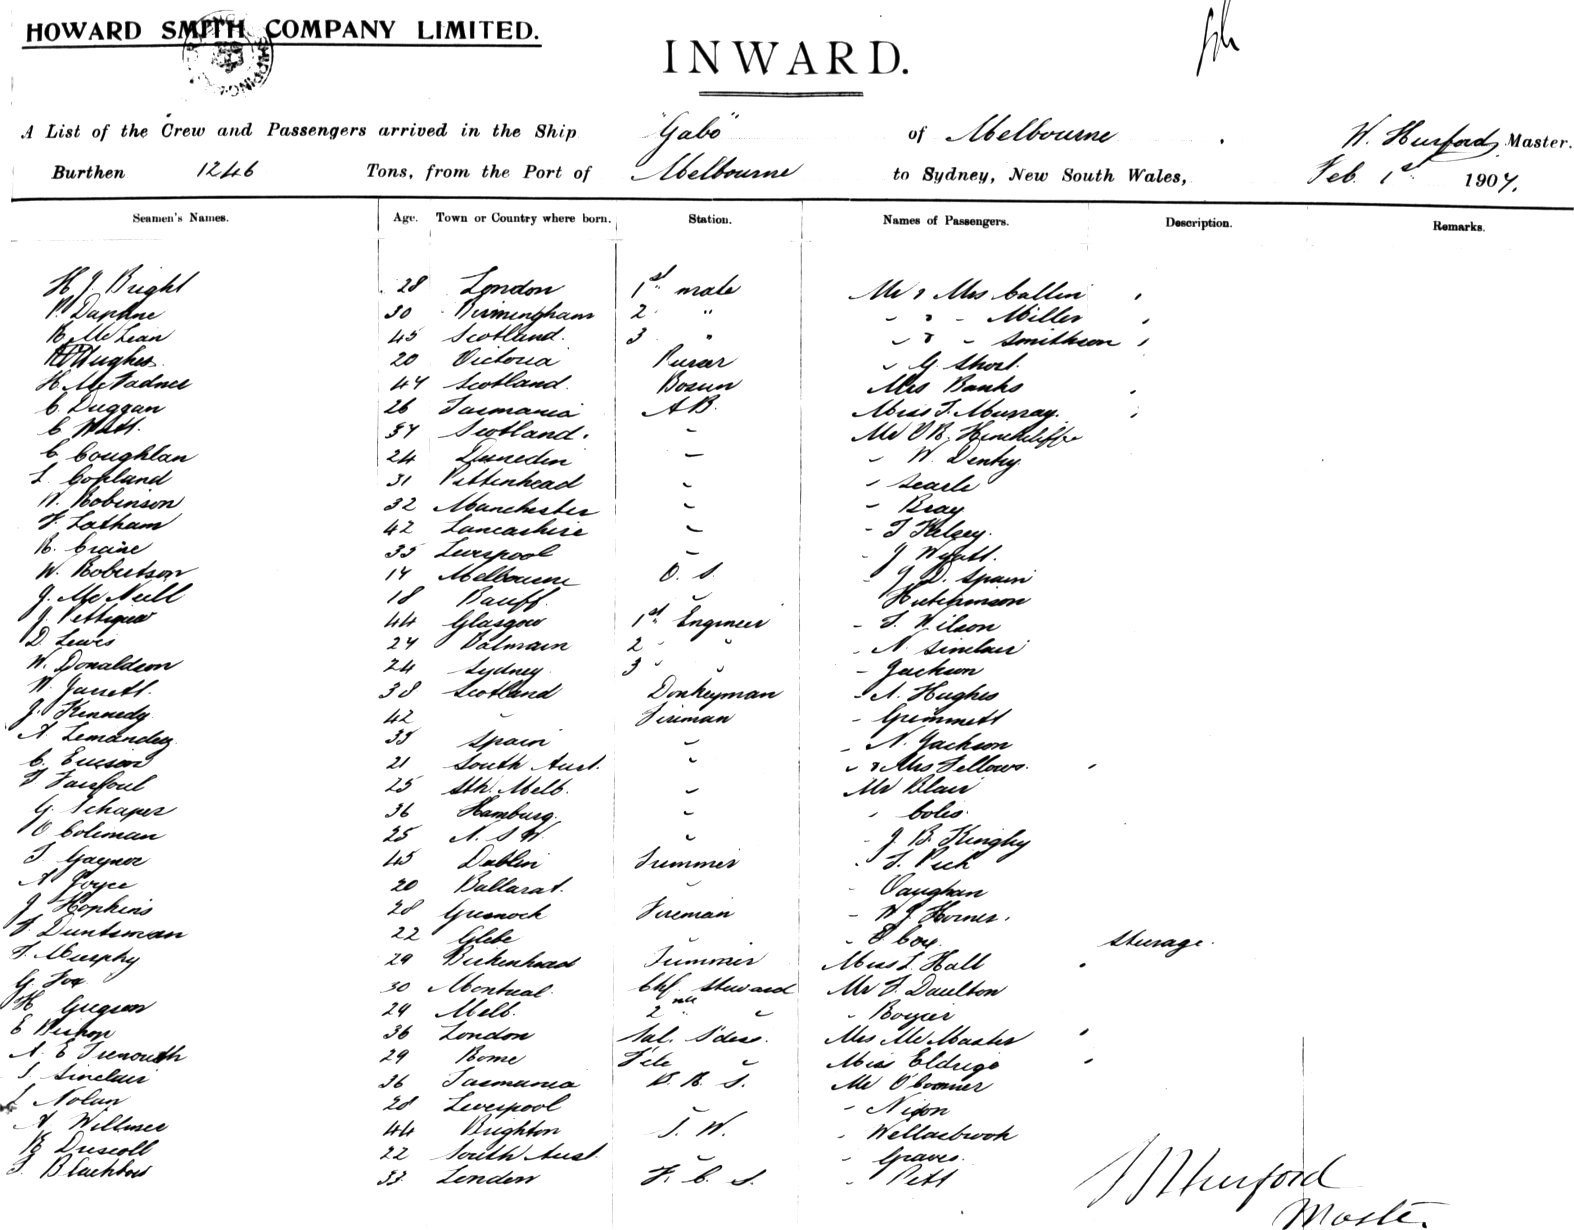 HOWARD SMITH COMPANY LIMITED.
INWARD.
A List of the Crew and Passengers arrived in the Ship "Gabo" of Melbourne W. Hurford Master.
Burthen 1246 Tons, from the Port of Melbourne to Sydney, New South Wales, Feb. 1st 1907.
Seamen's Names. Age. Town or Country where born. Station. Names of Passengers. Description. Remarks.
H J Bright 28 London 1st mate Mr & Mrs Callin
P. Daphne 30 Birmingham 2 " " & " Miller
R McLean 45 Scotland. 3 " " & " Smithson
Hughes. 20 Victoria Purser " G. Short.
H. McFadner 47 Scotland. Bosun Mrs Banks
C. Duggan 26 Tasmania AB. Miss F. Murray.
C Watt. 37 Scotland. " Mr Hinchcliffe
C Coughlan 24 Dunedin " " W. Dentry
L Copland 31 Pittenhead " " Searle
W. Robinson 32 Manchester " " Bray
F. Latham 42 Lancashire " " T Kelsey.
R. Craine 35 Liverpool " " J Wyatt.
W. Robertson 17 Melbourne O. S. " J D. Spain
J. McNeill 18 Banff. " Hutchinson
J. Pettigrew 44 Glasgow 1st Engineer " T. Wilson
D Lewis 27 Balmain 2 " " " N. Sinclair
W. Donaldson 24 Sydney 3 " " " Jackson
W. Jarrett. 38 Scotland Donkeyman " A. Hughes
J. Kennedy 42 " Fireman " Grimmett
A 35 Spain " " N. Jackson
C. Ericson 21 South Aust. " " & Mrs Fellows.
F Fairfoul 25 Sth. Melb. " Mr Blair
G. Schaper 36 Hamburg. " " Coles.
O Coleman 25 N. S W. " " J B. Kingby
T. Gaynor 45 Dublin Trimmer " T. Peck
A Joyce 20 Ballarat. " " Vaughan
J Hopkins 28 Greenock Fireman " W J Horner.
F Duntsman 22 Glebe " " E Cox. Steerage.
T. Murphy 29 Birkenhead Trimmer Miss L. Hall
G. Fox 30 Montreal. Chf. Steward Mr F. Daulton
H Gregson 29 Melb. 2nd " " Boyner
E Bishop 36 London Sal. Mrs McMaster
A. E Trenouth 29 Rome " Miss Eldrige
T. Sinclair 36 Tasmania B. R. S. Mr O'Connor
L Nolan 28 Liverpool " " Nixon
A. Willmer 44 Brighton S. W. " Wellasbrook
R Driscoll 22 South Aust. " " Graves.
T. 33 London F. C. S. " Pitt
Hurford
Master.